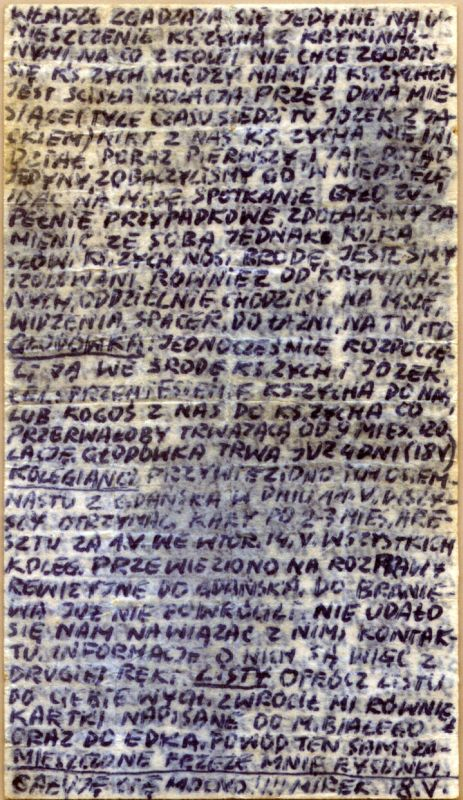 WŁADZE ZGADZAJĄ SIĘ JEDYNIE NA U-
NIESZCZENIE KS. ZYCHA Z KRYMINAL-
NYMI, NA CO Z KOLEI NIE CHCE ZGODZIĆ
SIĘ KS. ZYCH. MIĘDZY NAMI A KS. ZYCHEM
JEST ŚCISŁA IZOLACJA PRZEZ DWA MIE-
SIĄCE (TYLE CZASU SIEDZI TU JÓZEK Z JA-
CKIEM) NIKT Z NAS KS. ZYCHA NIE WI-
DZIAŁ. PORAZ PIERWSZY I JAK DOTĄD
JEDYNY, ZOBACZYLIŚMY GO W NIEDZIELĘ
IDĄC NA MSZĘ. SPOTKANIE BYŁO ZU-
PEŁNIE PRZYPADKOWE. ZDOŁALIŚMY ZA-
MIENIĆ ZE SOBĄ JEDNAK KILKA
SŁÓW. KS. ZYCH NOSI BRODĘ. JESTEŚMY
IZOLOWANI RÓWNIEŻ OD KRYMINAL-
NYCH, ODDZIELNIE CHODZIMY NA MSZE,
WIDZENIA, SPACER, DO ŁAŹNI, NA TV ITD
GŁODÓWKA: JEDNOCZEŚNIE ROZPOCZĘ-
LI JA WE ŚRODĘ KS. ZYCH I JÓZEK.
CEL: PRZENIESIENIE KS. ZYCHA DO NAS
LUB KOGOŚ Z NAS DO KS. ZYCHA CO
PRZERWAŁOBY TRWAJĄCĄ OD 9 MIES. IZO-
LACJĘ GŁODÓWKA TRWA JUŻ 4 DNI (18 V)
KOLEGIANCI PRZYWIEZIONO TU OSIEM-
NASTU Z GDAŃSKA W DNIU V. WSZY-
SCY OTRZYMALI KARY PO 2-3 MIES. ARE-
SZTU ZA 1.V. WE WTOR. 14. V. WSZYSTKICH
KOLEG. PRZEWIEZIONO NA ROZPRAWY
REWIZYJNE DO GDAŃSKA. DO BRANIE-
WA JUŻ NIE POWRÓCILI. NIE UDAŁO
SIĘ NAM NAWIĄZAĆ Z NIMI KONTAK-
TU. INFORMACJE O NICH SĄ WIĘC Z
DRUGIEJ RĘKI. LISTY OPRÓCZ LISTU
DO CIEBIE WYCH. ZWRÓCIŁ MI RÓWNIEŻ
KARTKI NAPISANE DO M. BIAŁEGO
ORAZ DO EDKA. POWÓD TEN SAM: ZA-
MIESZCZONE PRZEZE MNIE RYSUNKI
CAŁUJĘ CIĘ MOCNO!!!! MIREK. 18. V.